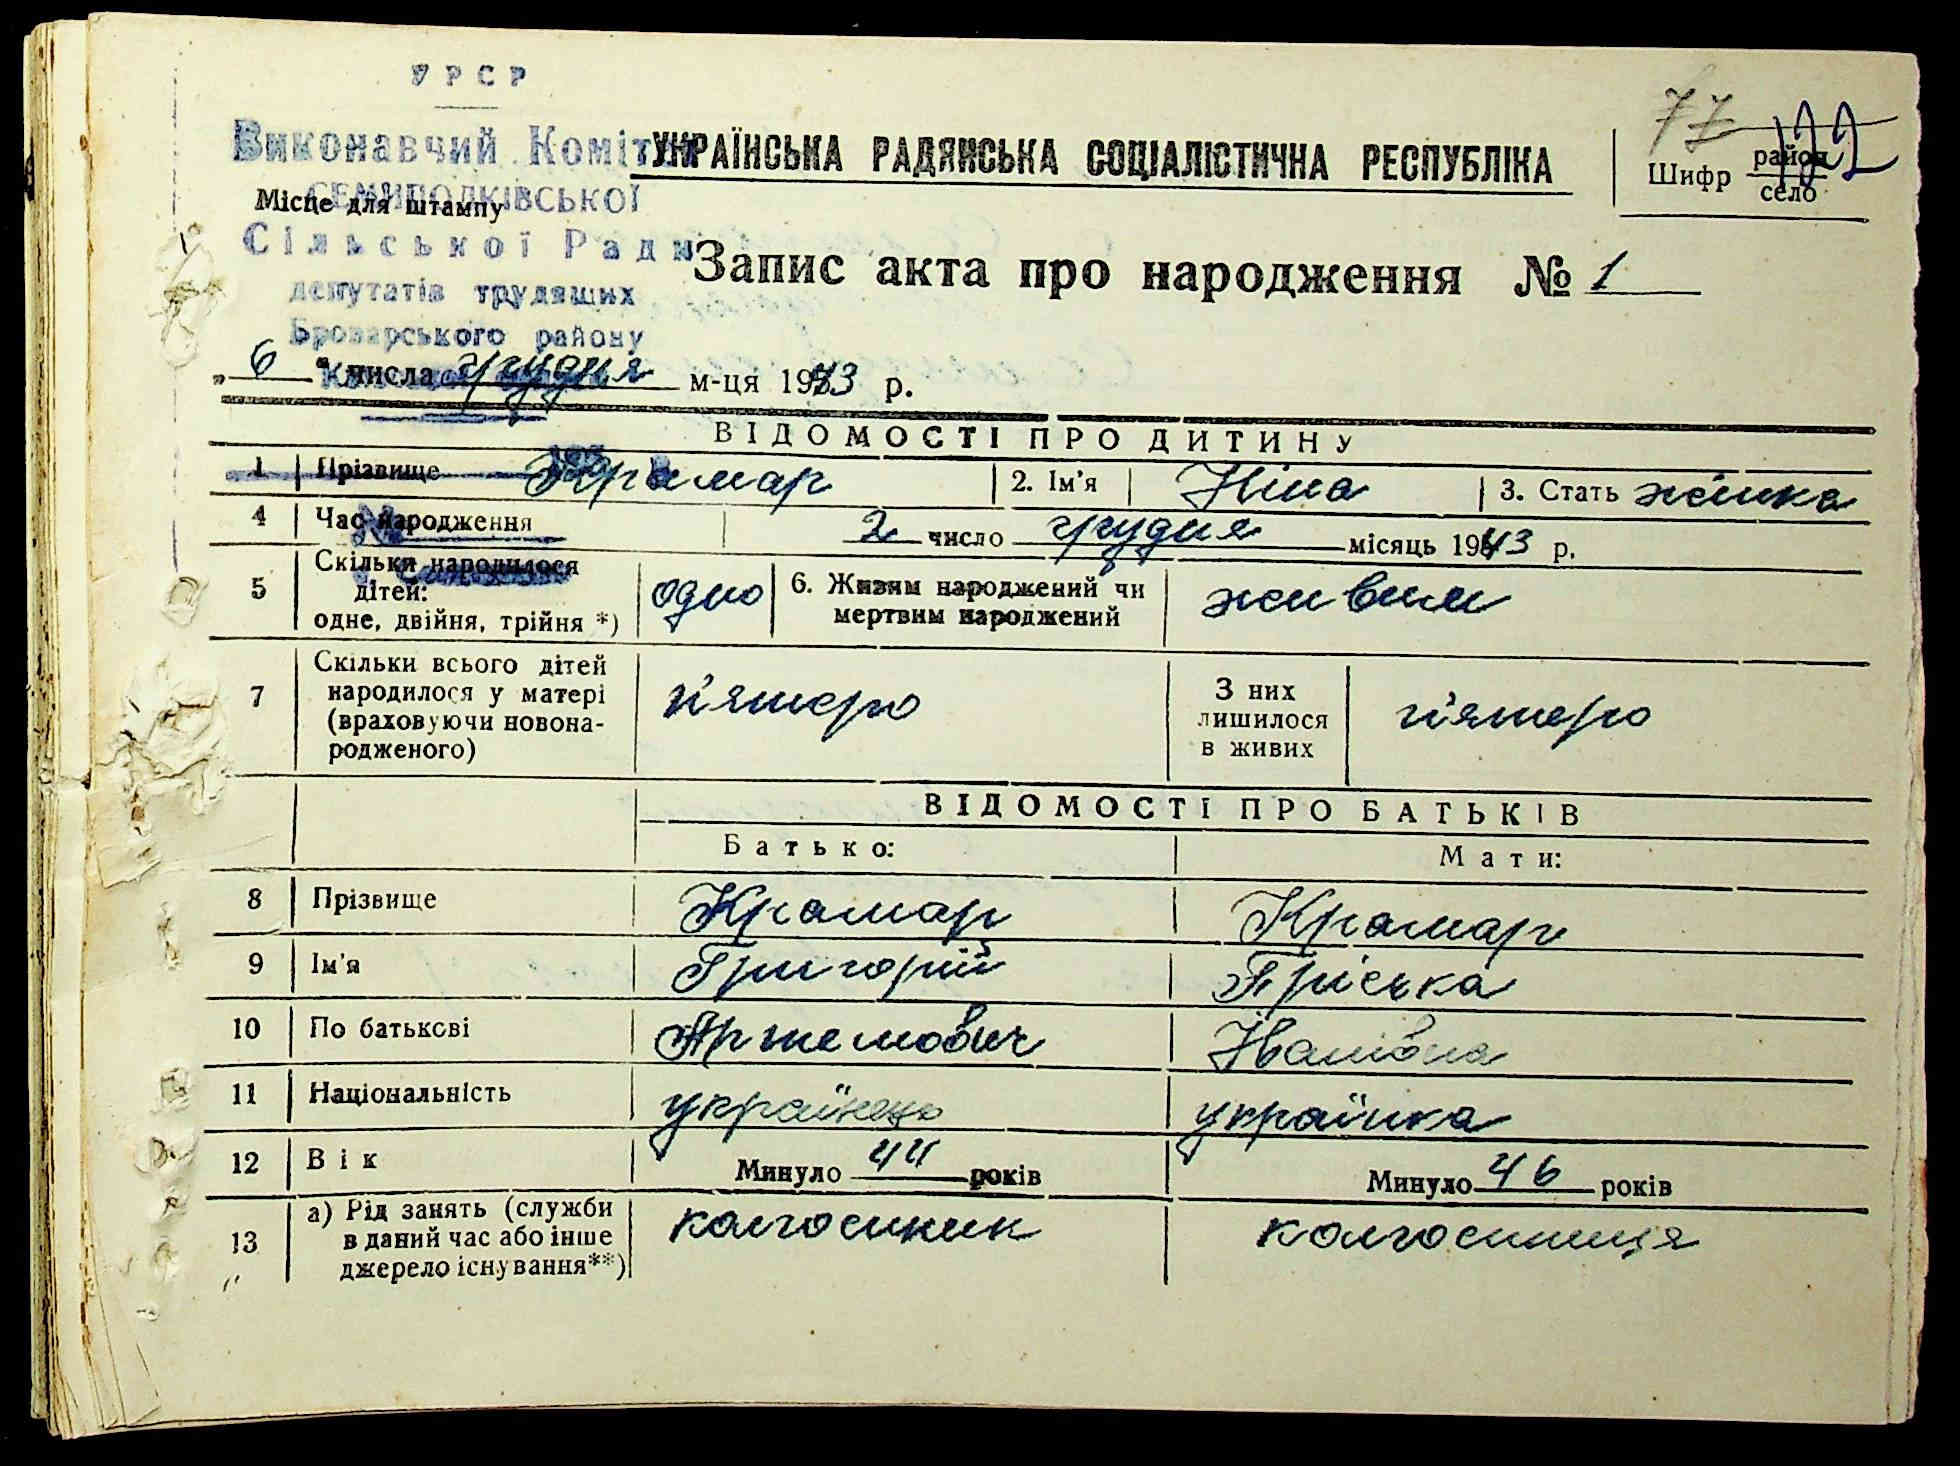 УРСР
Виконавчий Комітет
УКРАЇНСЬКА РАДЯНСЬКА СОЦІАЛІСТИЧНА РЕСПУБЛІКА
77
122
Шифр район село
СЕМИПОЛКІВСЬКОЇ
Місце для штампу
Сільської Ради
Запис акта про народження № 1
депутатів трудящих
Броварського району
„ 6 " числа грудня м-ця 1943 р.
ВІДОМОСТІ ПРО ДИТИНУ
1 Прізвище Крамар 2. Ім'я Ніна 3. Стать жінка
4 Час народження 2 число грудня місяць 1943 р.
5 Скільки народилося дітей: одне, двійня, трійня *) одно 6. Живим народжений чи мертвим народжений живим
7 Скільки всього дітей народилося у матері (враховуючи новона- родженого) п'ятеро З них лишилося в живих п'ятеро
ВІДОМОСТІ ПРО БАТЬКІВ
Батько: Мати:
8 Прізвище Крамар Крамар
9 Ім'я Григорій Пріська
10 По батькові Артемович Іванівна
11 Національність українець українка
12 Вік Минуло 44 років Минуло 46 років
13 а) Рід занять (служби в даний час або інше джерело існування**) колгоспник колгоспниця